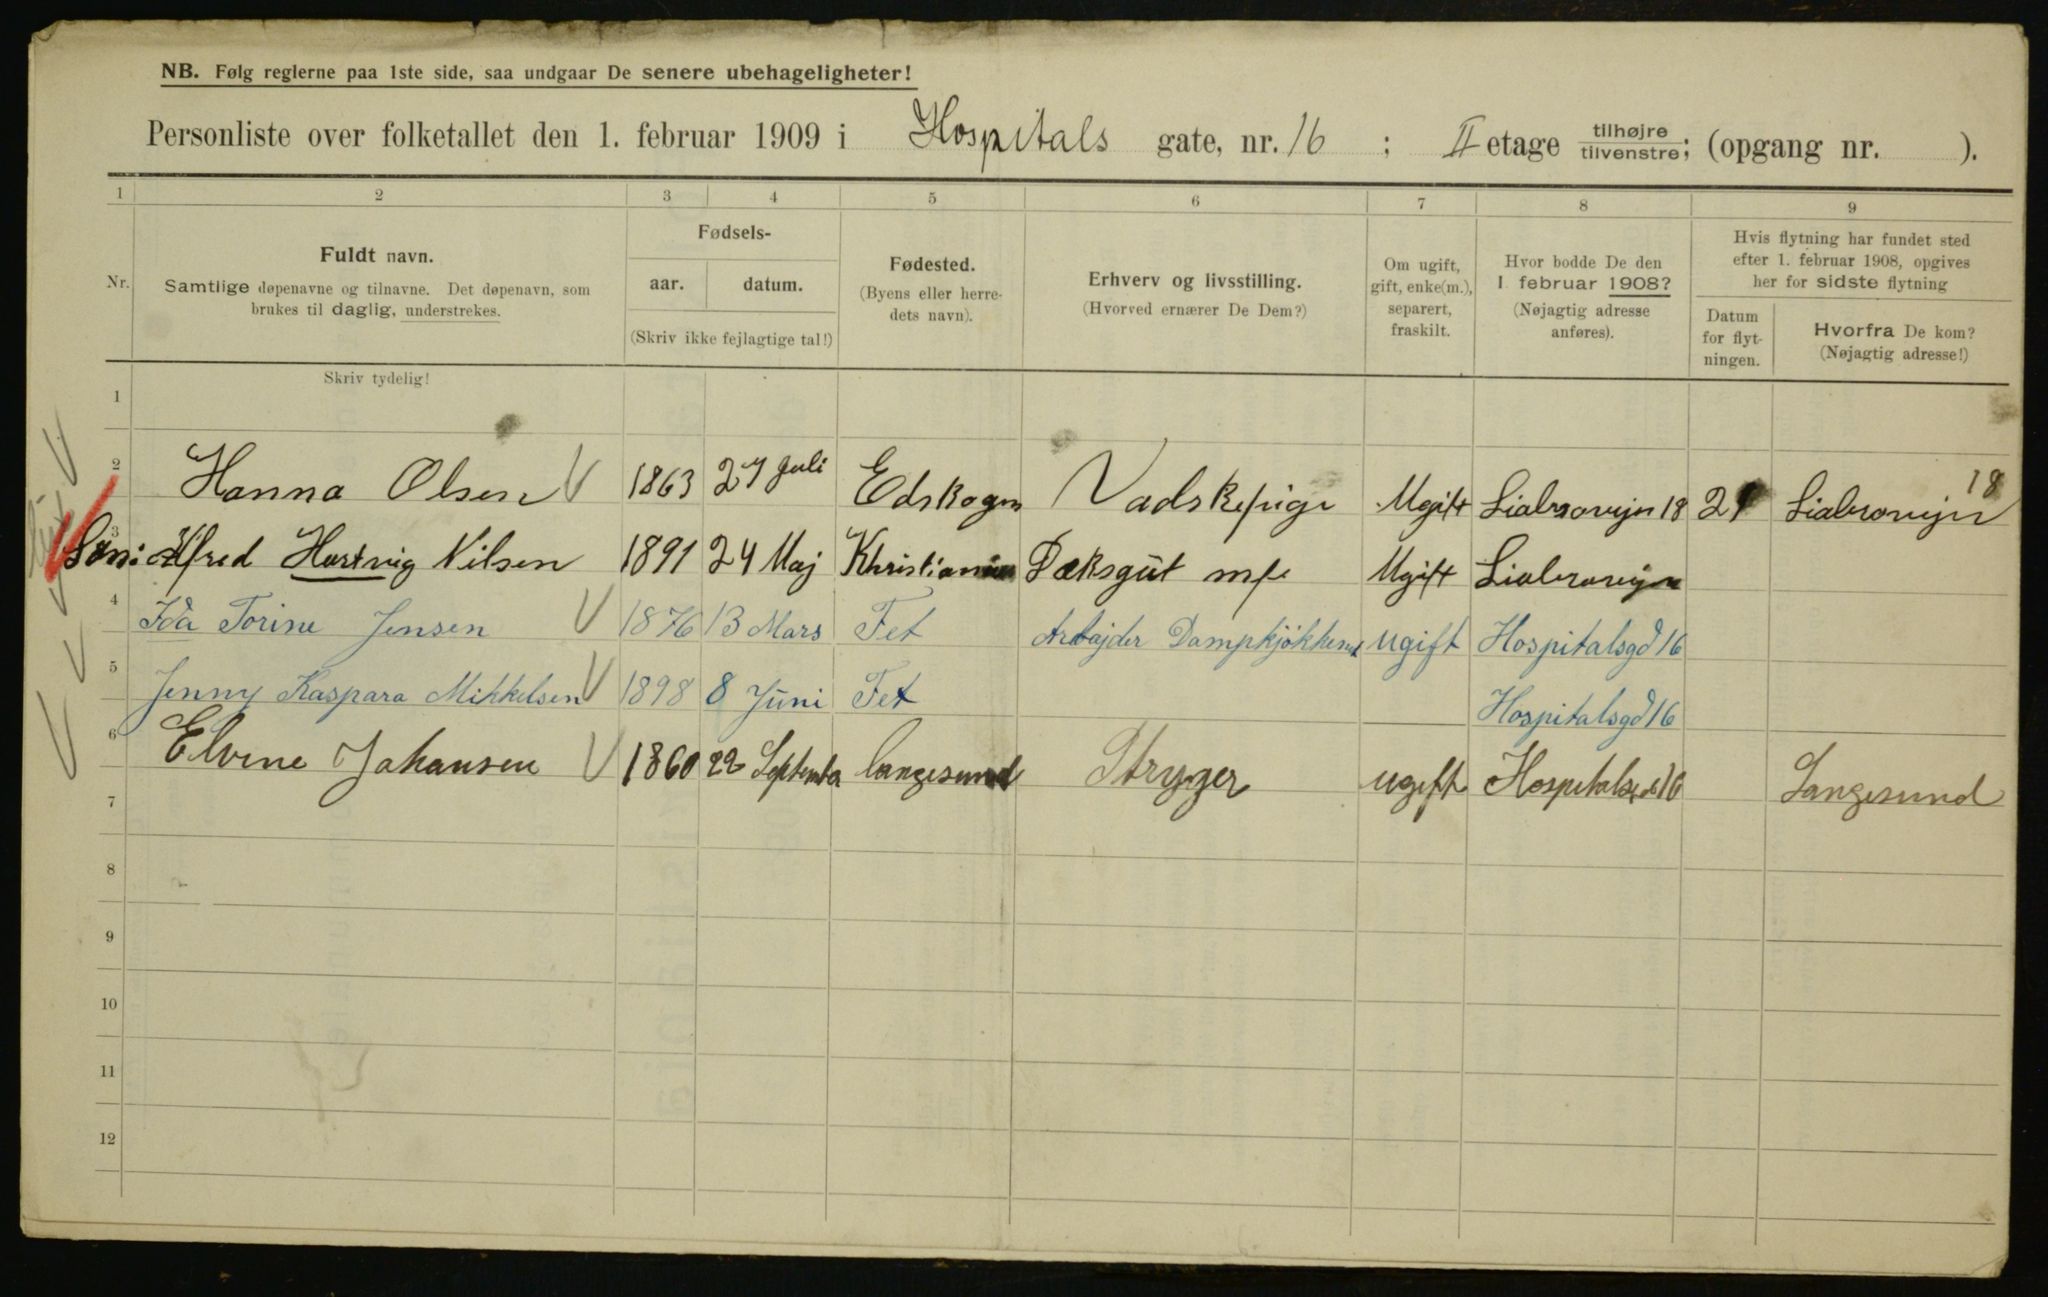 NB. Følg reglerne paa 1ste side, saa undgaar De senere ubehageligheter!
Personliste over folketallet den 1. februar 1909 i Hospitals gate, nr. 16 ; II etage tilhøjre tilvenstre; (opgang nr. ).
1 2 3 4 5 6 7 8 9
Nr.
Fuldt navn.
Samtlige døpenavne og tilnavne. Det døpenavn, som
brukes til daglig, understrekes.
Fødsels-
aar. datum.
(Skriv ikke fejlagtige tal!)
Fødested.
(Byens eller herre-
dets navn).
Erhverv og livsstilling.
(Hvorved ernærer De Dem?)
Om ugift,
gift, enke(m.),
separert,
fraskilt.
Hvor bodde De den
1. februar 1908?
(Nøjagtig adresse
anføres).
Hvis flytning har fundet sted
efter 1. februar 1908, opgives
her for sidste flytning
Datum
for flyt-
ningen.
Hvorfra De kom?
(Nøjagtig adresse!)
Skriv tydelig!
1
2 Hanna Olsen 1863 27 Juli Edskogen Vadskepige Ugift Liabrovejn 18 Liabrovejn 18
3 Alfred Hartvig Nilsen 1891 24 Maj Khristiania Dæksgut Ugift Liabrovejn
4 Ida Torine Jensen 1876 13 Mars Fet Arbajder Dampkjøkkenet ugift Hospitalsgd 16
5 Jenny Kaspara Mikkelsen 1898 8 Juni Fet Hospitalsgd 16
6 Elvine Johansen 1860 22 September langesund Stryger ugift Hospitalsgd 16 Langesund
7
8
9
10
11
12